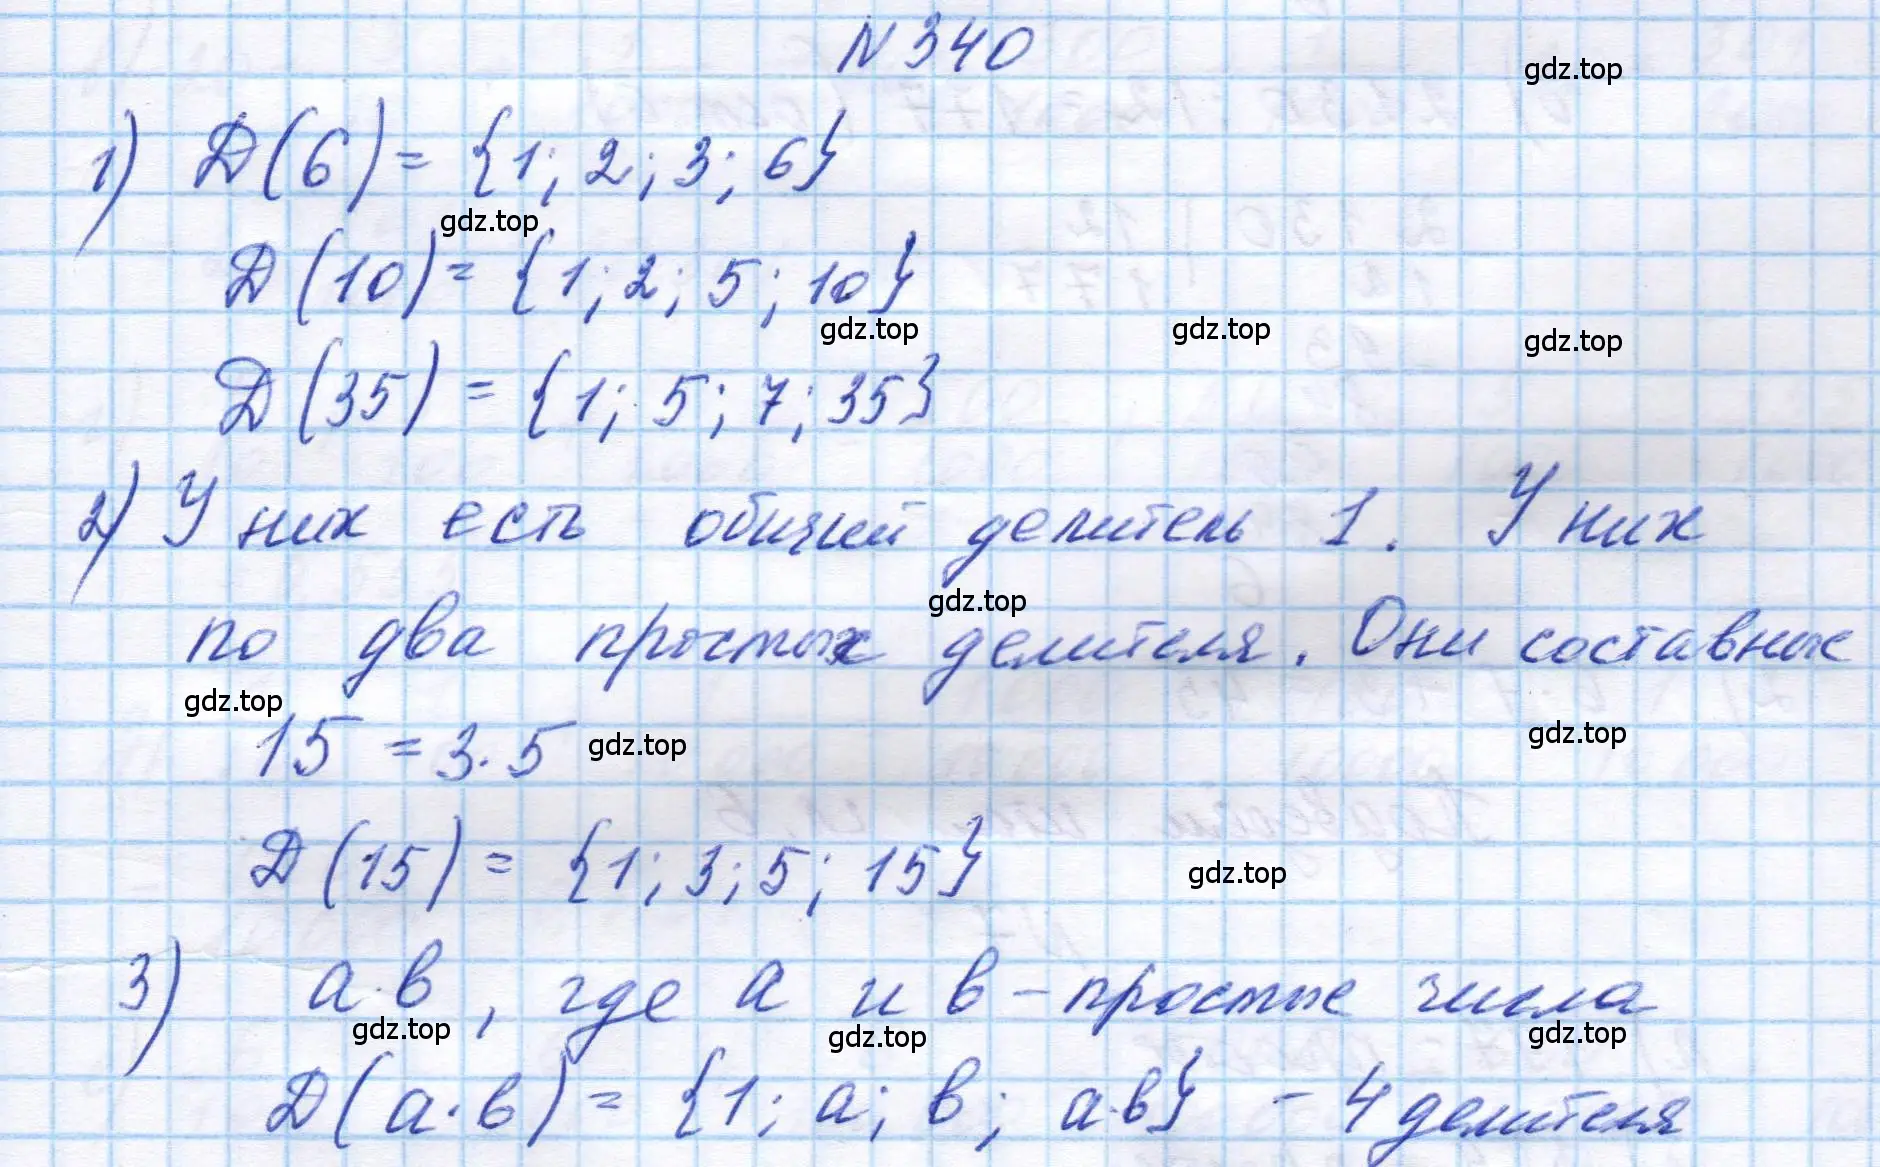 N 340
gdz.top
1) Д(6) = {1; 2; 3; 6}
gdz.top
Д(10) = {1; 2; 5; 10}
gdz.top gdz.top gdz.top
Д(35) = {1; 5; 7; 35}
2) У них есть общий делитель 1. У них
gdz.top
по два простых делителя. Они составные
gdz.top
15 = 3·5 gdz.top gdz.top
Д(15) = {1; 3; 5; 15} gdz.top
3) а·в, где а и в – простые числа
gdz.top gdz.top gdz.top
Д(а·в) = {1; а; в; а·в} – 4 делителя